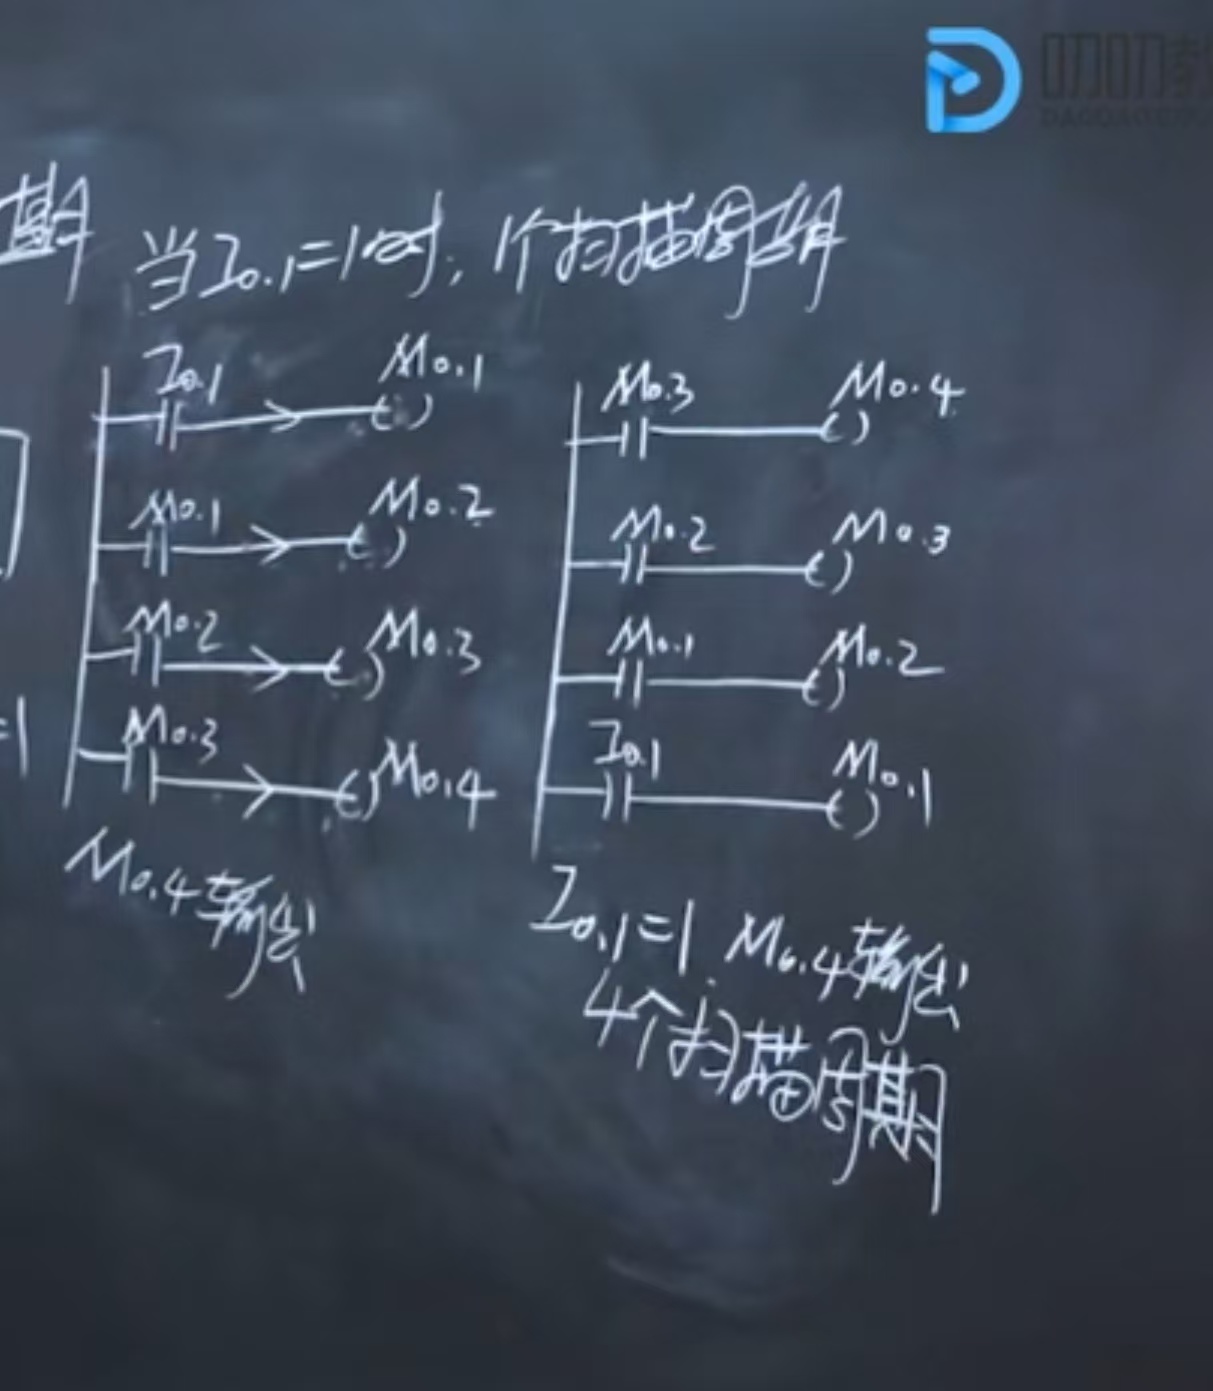 叨叨教
期
当I0.1=1时，1个扫描周期
I0.1 M0.1
M0.1 M0.2
M0.2 M0.3
M0.3 M0.4
M0.4输出
=1
M0.3 M0.4
M0.2 M0.3
M0.1 M0.2
I0.1 M0.1
I0.1=1 M0.4输出
4个扫描周期